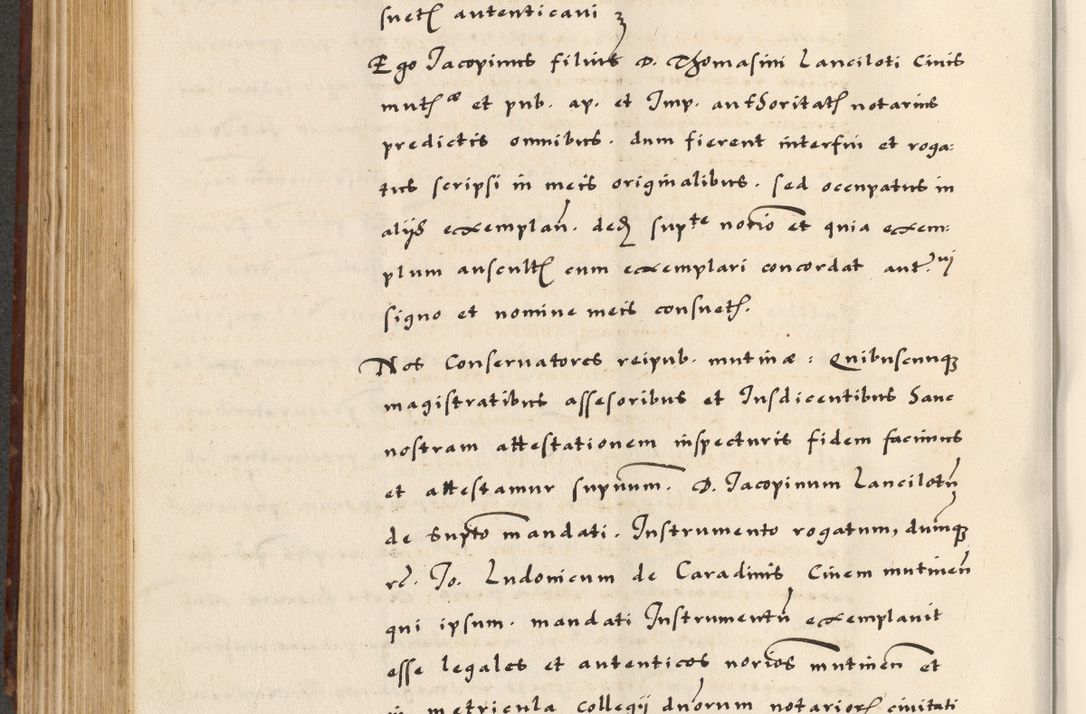 suet. autenticavi
Ego Jacopinus filius D. Thomasini Lanciloti Civis
mut.æ et pub. ap. et Imp. authoritat. notarius
predictis omnibus. dum fierent interfui et roga:
tus scripsi in meis originalibus. sed occupatus in
aliis exemplan. dedj supte notio et quia exem:
plum auscult. cum exemplari concordat aut.vi
signo et nomine meis consuet.
Nos Conservatores reipub. mutinæ: Quibuscunq
magistratibus assesoribus et Iusdicentibus Hanc
nostram attestationem inspecturis fidem facimus
et attestamur supnum. D. Jacopinum Lancilotu
de supto mandati. Instrumento rogatum, dumq
Jo. Ludovicum de Caradinis Civem mutinen
qui ipsum. mandati Instrumentu exemplavit
esse legales et autenticos norios mutinen et
in metricula Collegij dnorum notarior. civitati